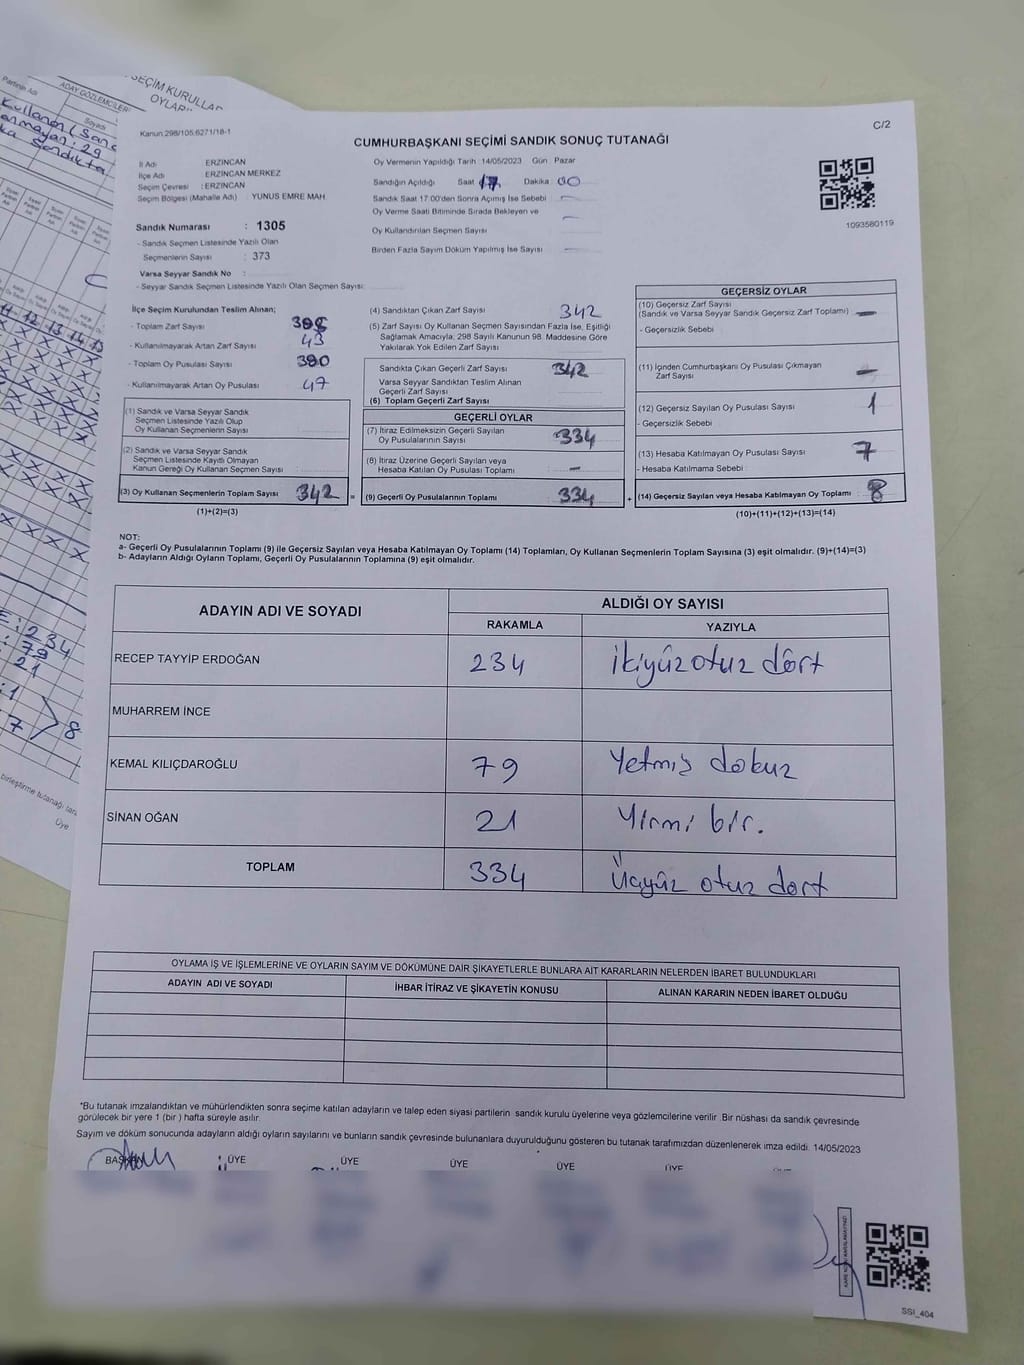 SEÇİM KURULLAR
OYLAR
ADAY GÖZLEMCİLER
Partinin Adı
Soyadı
Kullanan (Sand
anmayan: 29
ka sandıkta
11 12 13 14 15
: 234
: 79
21
:1
7 > 8
birleştirme tutanağı
Üye
Kanun.298/105:6271/18-1
C/2
CUMHURBAŞKANI SEÇİMİ SANDIK SONUÇ TUTANAĞI
İl Adı ERZİNCAN
İlçe Adı ERZİNCAN MERKEZ
Seçim Çevresi : ERZİNCAN
Seçim Bölgesi (Mahalle Adı) YUNUS EMRE MAH
Sandık Numarası : 1305
- Sandık Seçmen Listesinde Yazılı Olan
Seçmenlerin Sayısı : 373
Varsa Seyyar Sandık No :
- Seyyar Sandık Seçmen Listesinde Yazılı Olan Seçmen Sayısı:
Oy Vermenin Yapıldığı Tarih 14/05/2023 Gün Pazar
Sandığın Açıldığı Saat 17 Dakika 00
Sandık Saat 17:00'den Sonra Açımış İse Sebebi
Oy Verme Saati Bitiminde Sırada Bekleyen ve
Oy Kullandırılan Seçmen Sayısı
Birden Fazla Sayım Döküm Yapılmış İse Sayısı
1093580119
İlçe Seçim Kurulundan Teslim Alınan;
- Toplam Zarf Sayısı
- Kullanılmayarak Artan Zarf Sayısı 43
- Toplam Oy Pusulası Sayısı 390
- Kullanılmayarak Artan Oy Pusulası 47
(1) Sandık ve Varsa Seyyar Sandık
Seçmen Listesinde Yazılı Olup
Oy Kullanan Seçmenlerin Sayısı
(2) Sandık ve Varsa Seyyar Sandık
Seçmen Listesinde Kayıtlı Olmayan
Kanun Gereği Oy Kullanan Seçmen Sayısı
(3) Oy Kullanan Seçmenlerin Toplam Sayısı 342 =
(1)+(2)=(3)
(4) Sandıktan Çıkan Zarf Sayısı 342
(5) Zarf Sayısı Oy Kullanan Seçmen Sayısından Fazla İse, Eşitliği
Sağlamak Amacıyla; 298 Sayılı Kanunun 98. Maddesine Göre
Yakılarak Yok Edilen Zarf Sayısı
Sandıkta Çıkan Geçerli Zarf Sayısı 342
Varsa Seyyar Sandıktan Teslim Alınan
Geçerli Zarf Sayısı
(6) Toplam Geçerli Zarf Sayısı
GEÇERLİ OYLAR
(7) İtiraz Edilmeksizin Geçerli Sayılan
Oy Pusulalarının Sayısı 334
(8) İtiraz Üzerine Geçerli Sayılan veya
Hesaba Katılan Oy Pusulası Toplamı —
(9) Geçerli Oy Pusulalarının Toplamı 334 +
GEÇERSİZ OYLAR
(10) Geçersiz Zarf Sayısı
(Sandık ve Varsa Seyyar Sandık Geçersiz Zarf Toplamı) —
- Geçersizlik Sebebi
(11) İçinden Cumhurbaşkanı Oy Pusulası Çıkmayan
Zarf Sayısı —
(12) Geçersiz Sayılan Oy Pusulası Sayısı 1
- Geçersizlik Sebebi
(13) Hesaba Katılmayan Oy Pusulası Sayısı 7
- Hesaba Katılmama Sebebi
(14) Geçersiz Sayılan veya Hesaba Katılmayan Oy Toplamı 8
(10)+(11)+(12)+(13)=(14)
NOT:
a- Geçerli Oy Pusulalarının Toplamı (9) ile Geçersiz Sayılan veya Hesaba Katılmayan Oy Toplamı (14) Toplamları, Oy Kullanan Seçmenlerin Toplam Sayısına (3) eşit olmalıdır. (9)+(14)=(3)
b- Adayların Aldığı Oyların Toplamı, Geçerli Oy Pusulalarının Toplamına (9) eşit olmalıdır.
ADAYIN ADI VE SOYADI ALDIĞI OY SAYISI
RAKAMLA YAZIYLA
RECEP TAYYİP ERDOĞAN 234 ikiyüzotuz dört
MUHARREM İNCE
KEMAL KILIÇDAROĞLU 79 Yetmiş dokuz
SİNAN OĞAN 21 Yirmi bir.
TOPLAM 334 Üçyüz otuz dört
OYLAMA İŞ VE İŞLEMLERİNE VE OYLARIN SAYIM VE DÖKÜMÜNE DAİR ŞİKAYETLERLE BUNLARA AİT KARARLARIN NELERDEN İBARET BULUNDUKLARI
ADAYIN ADI VE SOYADI İHBAR İTİRAZ VE ŞİKAYETİN KONUSU ALINAN KARARIN NEDEN İBARET OLDUĞU
*Bu tutanak imzalandıktan ve mühürlendikten sonra seçime katılan adayların ve talep eden siyasi partilerin sandık kurulu üyelerine veya gözlemcilerine verilir. Bir nüshası da sandık çevresinde
görülecek bir yere 1 (bir) hafta süreyle asılır.
Sayım ve döküm sonucunda adayların aldığı oyların sayılarını ve bunların sandık çevresinde bulunanlara duyurulduğunu gösteren bu tutanak tarafımızdan düzenlenerek imza edildi. 14/05/2023
BAŞKAN ÜYE ÜYE ÜYE ÜYE ÜYE
SSI_404